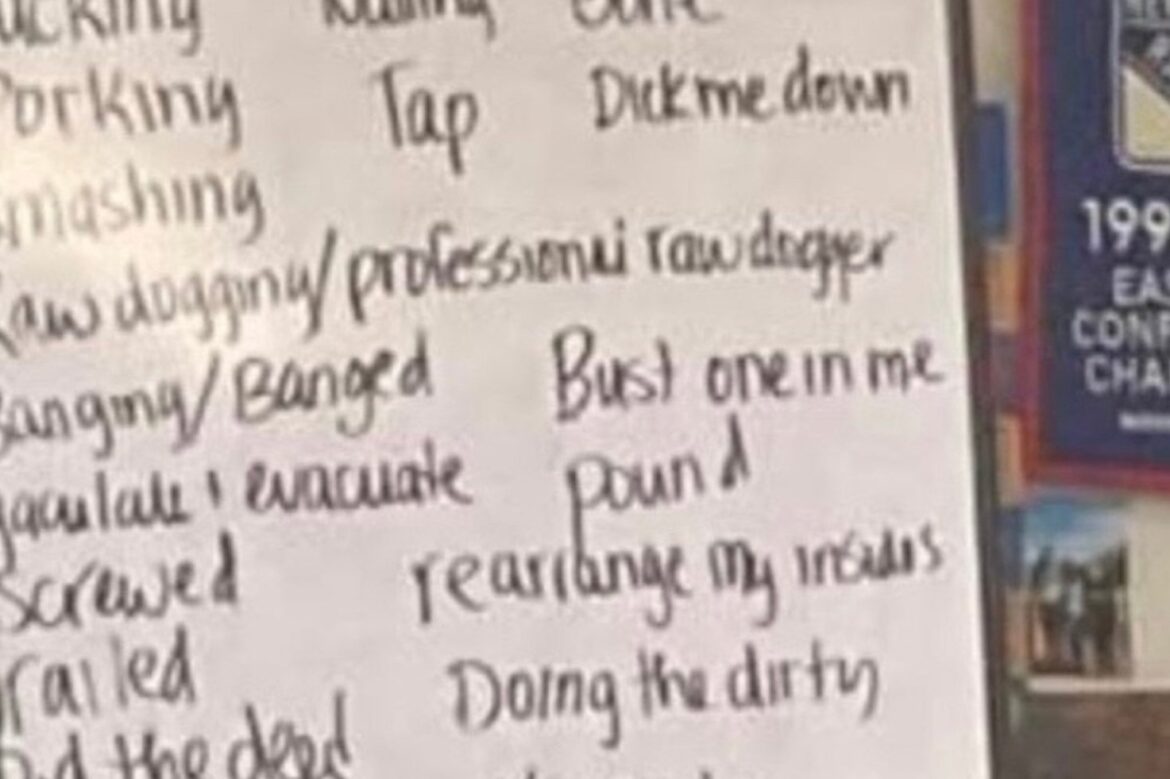 Porking Tap Dick me down
Smashing
Raw dogging/professional raw dogger
Banging/Banged Bust one in me
evacuate pound
Screwed rearrange my insides
railed Doing the dirty
the deed
199
EAS
CONF
CHA